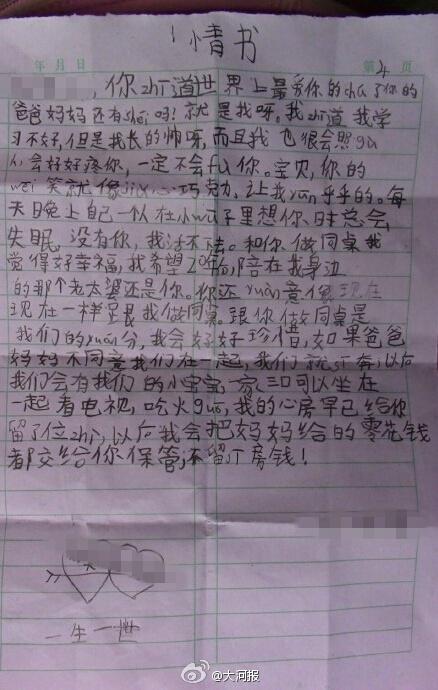 情书
年 月 日 第4页
,你zhī道世界上最爱你的chú了你的
爸爸妈妈还有shéi吗!就是我呀。我zhī道我学
习不好,但是我长的帅呀,而且我也很会照gù
人,会好好疼你,一定不会fù你。宝贝,你的
wēi笑就像巧克力,让我yūn乎乎的。每
天晚上自己一人在小wū子里想你,时总会
失眠,没有你,我活不下去。和你做同桌我
觉得好幸福,我希望20年后,陪在我身边
的那个老太婆还是你。你还yuàn意像现在
现在一样跟我做同桌。跟你做同桌是
我们的yuán分,我会好好珍惜,如果爸爸
妈妈不同意我们在一起,我们就奔,以后
我们会有我们的小宝宝,一家三口可以坐在
一起看电视,吃火guō,我的心房早已给你
留了位zhì,以后我会把妈妈给的零花钱
都交给你保管,不留丁房钱!
一生一世
@大河报